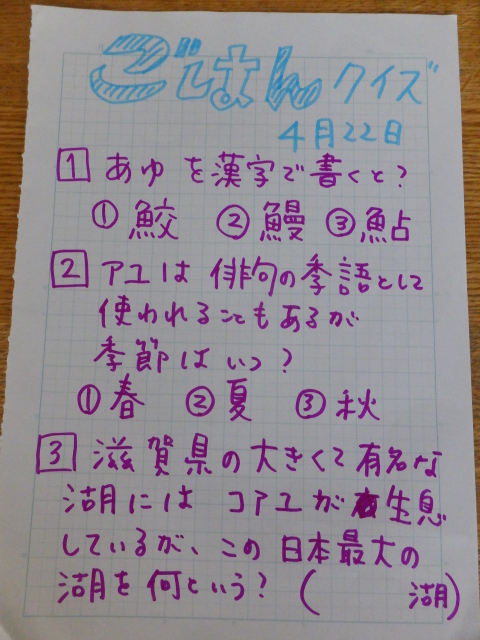 ごはんクイズ
4月22日
1 あゆを漢字で書くと?
①鮫 ②鰻 ③鮎
2 アユは俳句の季語として
使われることもあるが
季節はいつ?
①春 ②夏 ③秋
3 滋賀県の大きくて有名な
湖にはコアユが生息
しているが、この日本最大の
湖を何という?( 湖)